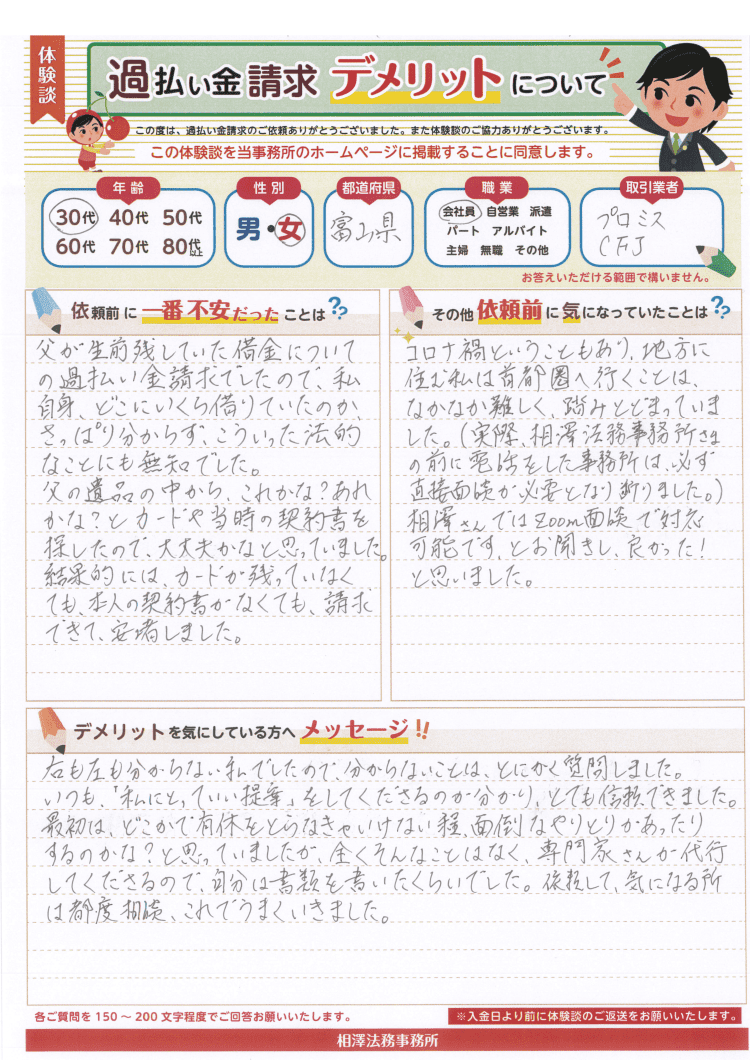 体験談
過払い金請求 デメリットについて
この度は、過払い金請求のご依頼ありがとうございました。また体験談のご協力ありがとうございます。
この体験談を当事務所のホームページに掲載することに同意します。
年齢
30代 40代 50代
60代 70代 80代以上
性別
男・女
都道府県
富山県
職業
会社員 自営業 派遣
パート アルバイト
主婦 無職 その他
取引業者
プロミス
CFJ
お答えいただける範囲で構いません。
依頼前に一番不安だったことは??
父が生前残していた借金について
の過払い金請求でしたので、私
自身、どこにいくら借りていたのか、
さっぱり分からず、こういった法的
なことにも無知でした。
父の遺品の中から、これかな?あれ
かな?とカードや当時の契約書を
探したので、大丈夫かなと思っていました。
結果的には、カードが残っていなく
ても、本人の契約書がなくても、請求
できて、安堵しました。
その他依頼前に気になっていたことは??
コロナ禍ということもあり、地方に
住む私は首都圏へ行くことは、
なかなか難しく、踏みとどまっていま
した。(実際、相澤法務事務所さま
の前に電話をした事務所は、必ず
直接面談が必要となり断りました。)
相澤さんではZoom面談で対応
可能です、とお聞きし、良かった!
と思いました。
デメリットを気にしている方へ メッセージ!!
右も左も分からない私でしたので、分からないことは、とにかく質問しました。
いつも、「私にとっていい提案」をしてくださるのが分かり、とても信頼できました。
最初は、どこかで有休をとらなきゃいけない程、面倒なやりとりがあったり
するのかな?と思っていましたが、全くそんなことはなく、専門家さんが代行
してくださるので、自分は書類を書いたくらいでした。依頼して、気になる所
は都度相談、これでうまくいきました。
各ご質問を150〜200文字程度でご回答お願いいたします。
※入金日より前に体験談のご返送をお願いいたします。
相澤法務事務所